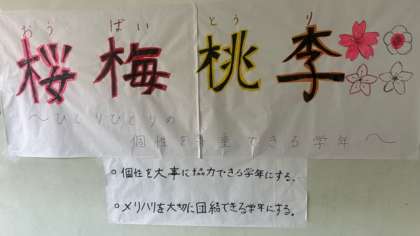 おう ばい とう り
桜梅桃李
〜ひとりひとりの
個性を尊重できる学年〜
○個性を大事に協力できる学年にする。
○メリハリを大切に団結できる学年にする。